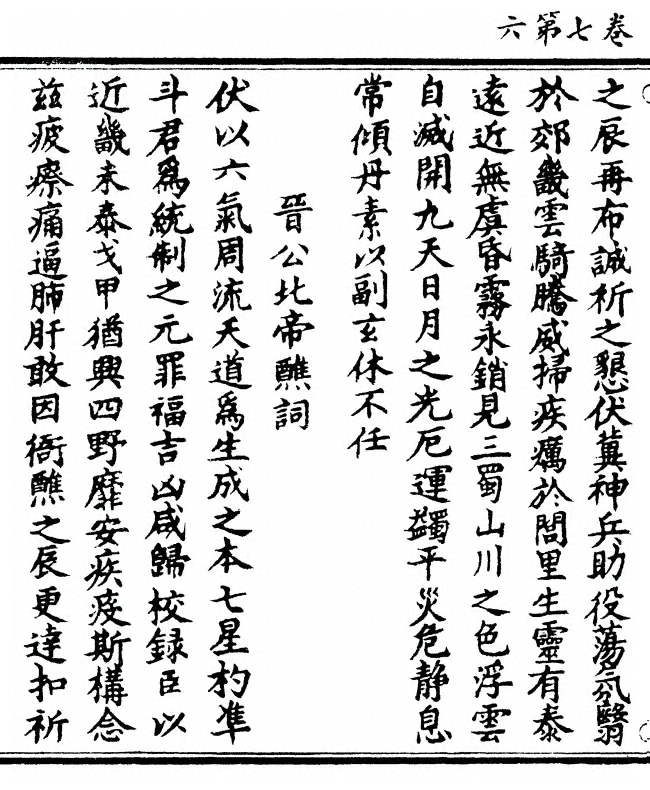 卷七第六
之辰再布誠祈之懇伏冀神兵助役蕩氛翳
於郊畿雲騎騰威掃疾癘於閭里生靈有泰
遠近無虞昏霧永銷見三蜀山川之色浮雲
自滅開九天日月之光厄運蠲平災危静息
常傾丹素以副玄休不任
晉公北帝醮詞
伏以六氣周流天道爲生成之本七星杓準
斗君爲統制之元罪福吉凶咸歸校録臣以
近畿未泰戈甲猶興四野靡安疾疫斯構念
兹疲瘵痛逼肺肝敢因衙醮之辰更達扣祈